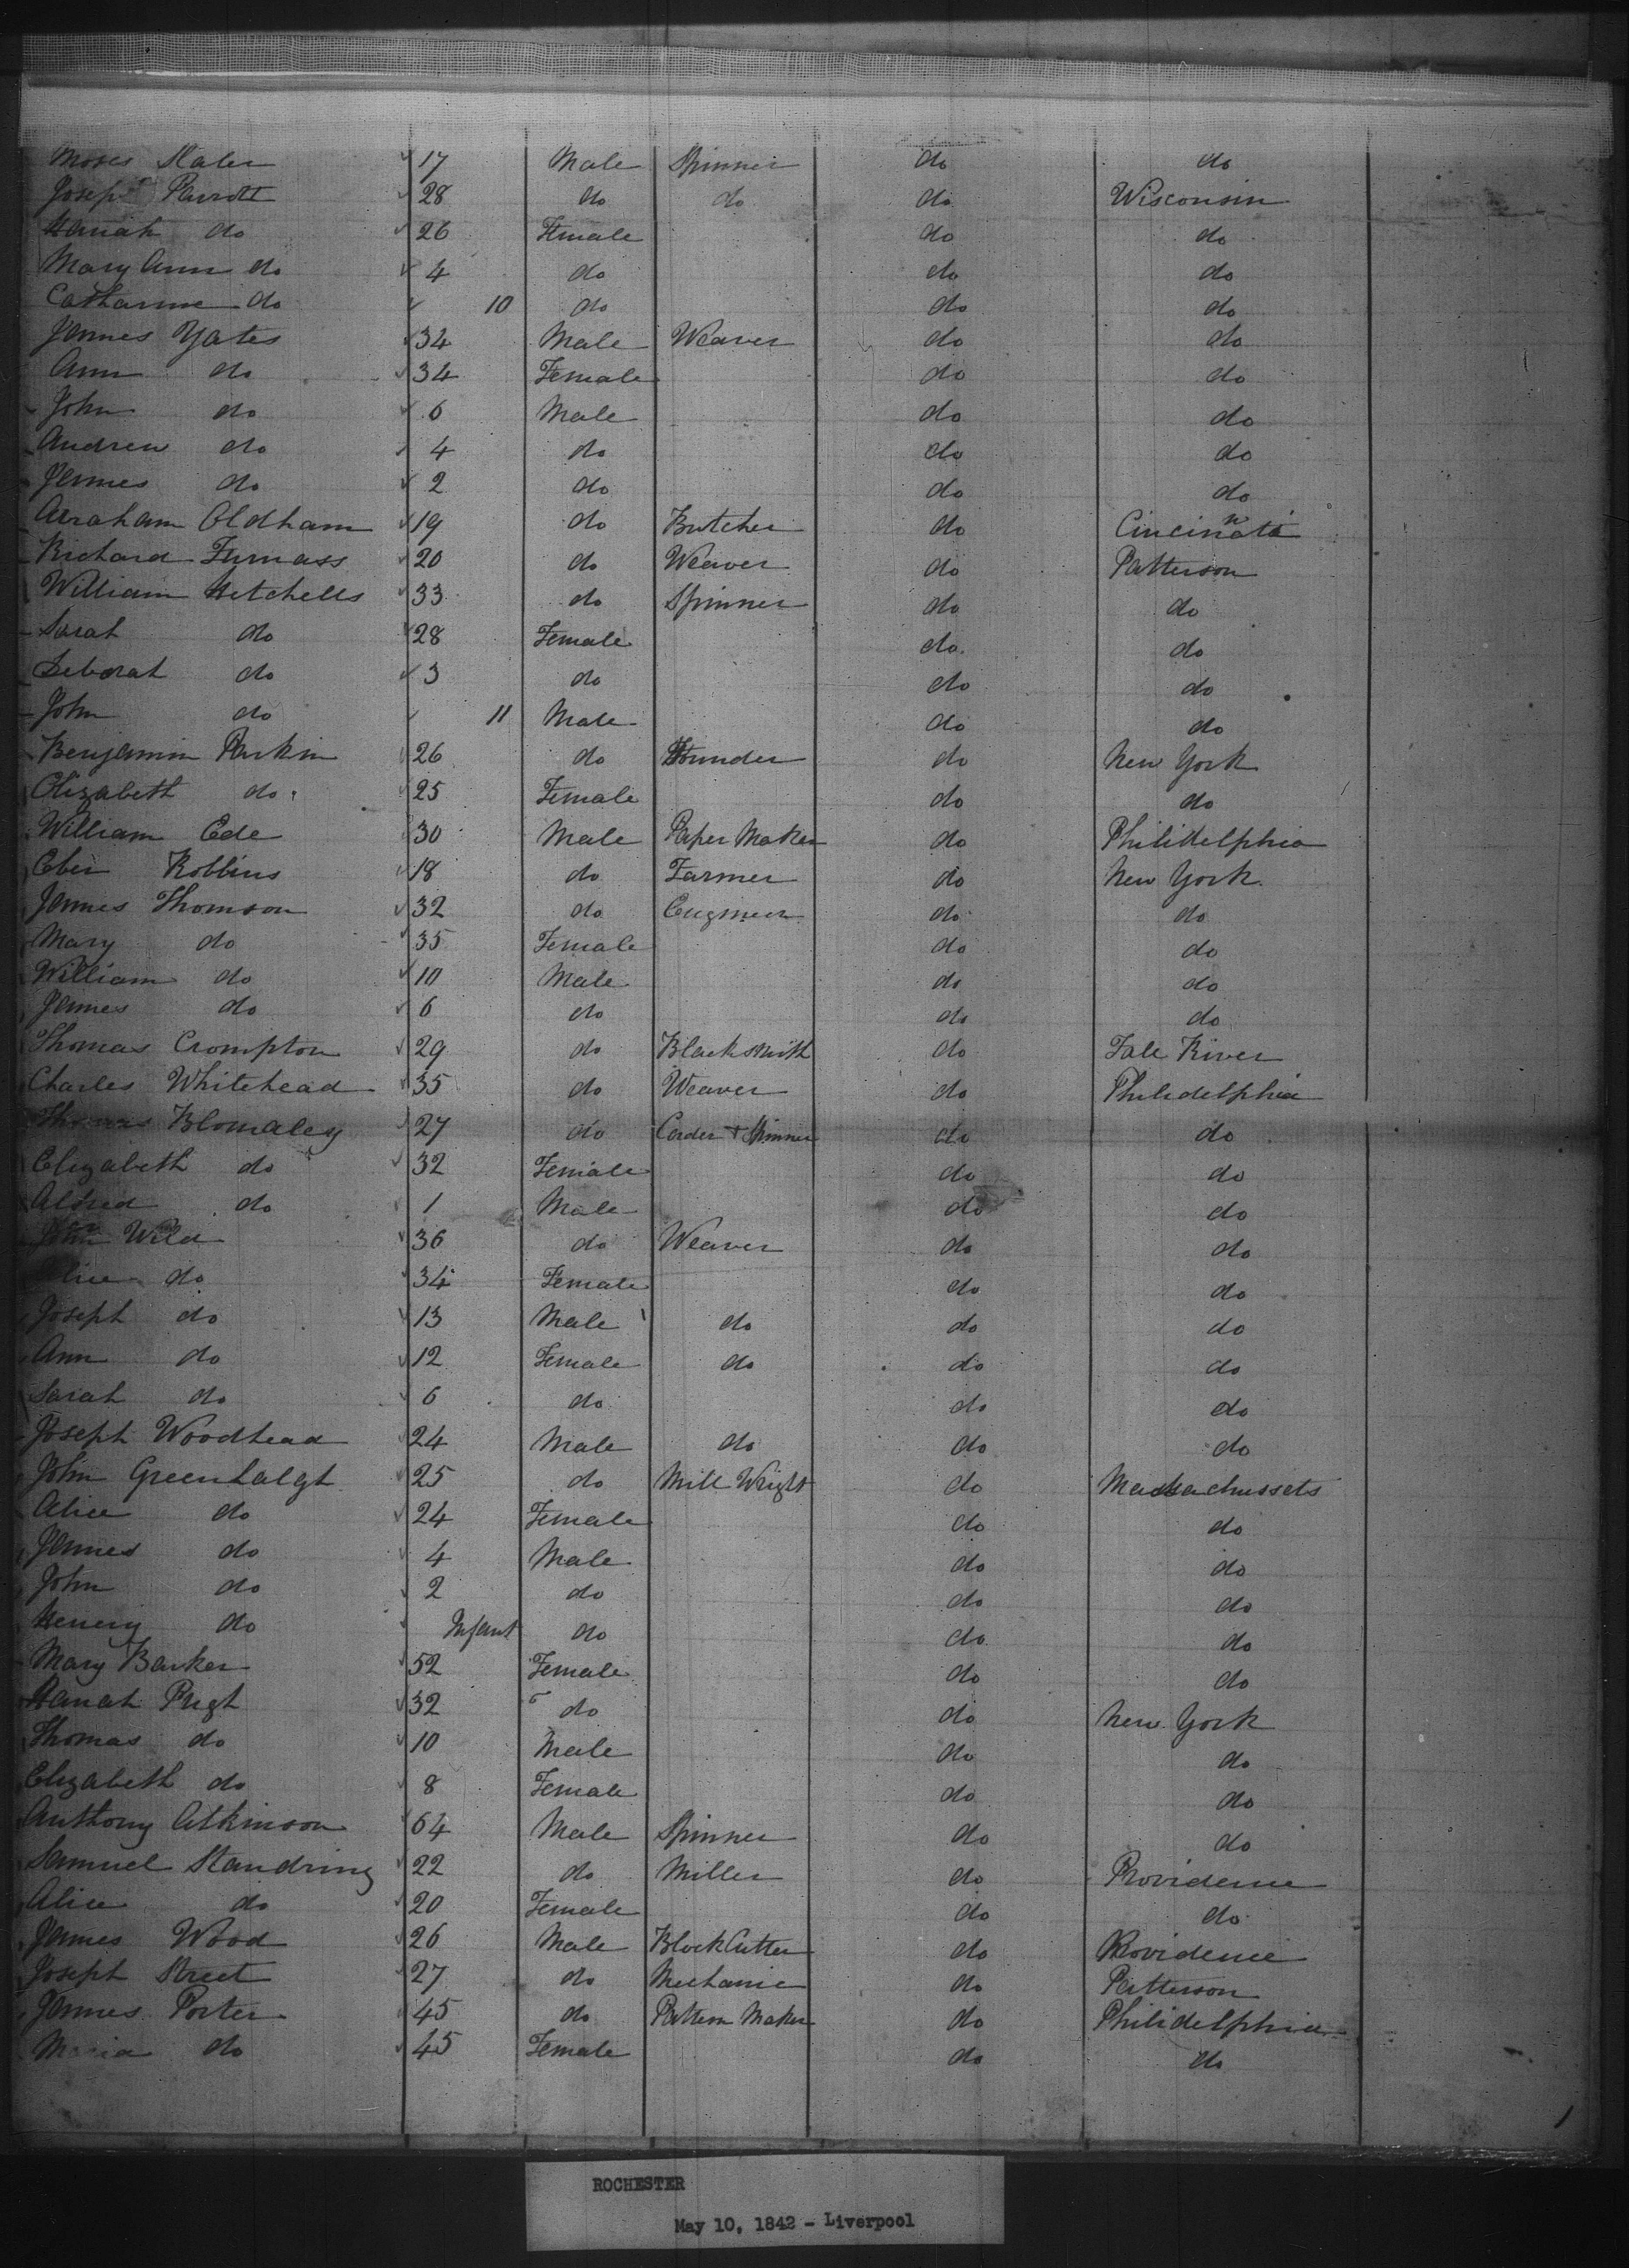 Moses Slater 17 Male Spinner do do
Joseph Parrott 28 do do do Wisconsin
Hanah do 26 Female do do
Mary Ann do 4 do do do
Catharine do 10 do do do
James Yates 34 Male Weaver do do
Ann do 34 Female do do
John do 6 Male do do
Andrew do 4 do do do
James do 2 do do do
Abraham Oldham 19 do Butcher do Cincinnati
Richard Furnass 20 do Weaver do Patterson
William Hetchells 33 do Spinner do do
Sarah do 28 Female do do
Deborah do 3 do do do
John do 11 Male do do
Benjamin Parkin 26 do Founder do New York
Elizabeth do 25 Female do do
William Ede 30 Male Paper Maker do Philidelphia
Eben Robbins 18 do Farmer do New York
James Thomson 32 do Engineer do do
Mary do 35 Female do do
William do 10 Male do do
James do 6 do do do
Thomas Crompton 29 do Blacksmith do Fall River
Charles Whitehead 35 do Weaver do Philidelphia
Thomas Blomaley 27 do Carder + Spinner do do
Elizabeth do 32 Female do do
Alfred do 1 Male do do
John Wild 36 do Weaver do do
Alice do 34 Female do do
Joseph do 13 Male do do do
Ann do 12 Female do do do
Sarah do 6 do do do
Joseph Woodhead 24 Male do do do
John Greenhalgh 25 do Mill Wright do Massachussets
Alice do 24 Female do do
James do 4 Male do do
John do 2 do do do
Henery do Infant do do do
Mary Barker 52 Female do do
Hanah Pugh 32 do do New York
Thomas do 10 Male do do
Elizabeth do 8 Female do do
Anthony Atkinson 64 Male Spinner do do
Samuel Standring 22 do Miller do Providence
Alice do 20 Female do do
James Wood 26 Male Block Cutter do Providence
Joseph Street 27 do Mechanic do Patterson
James Porter 45 do Pattern Maker do Philidelphia
Maria do 45 Female do do
ROCHESTER
May 10, 1842 - Liverpool